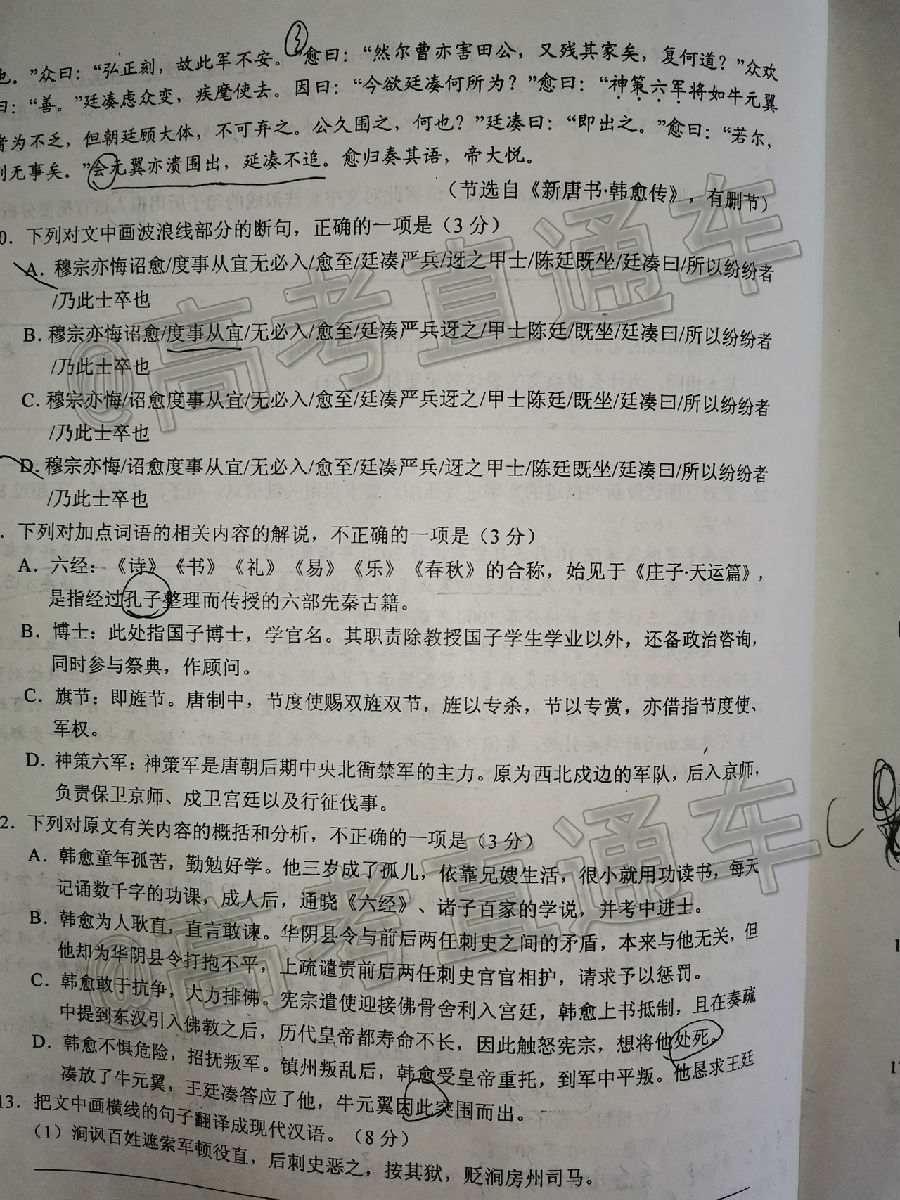 也。”众曰：“弘正刻，故此军不安。”愈曰：“然尔曹亦害田公，又残其家矣，复何道？”众欢
曰：“善。”廷凑虑众变，疾麾使去。因曰：“今欲廷凑何所为？”愈曰：“神策六军将如牛元翼
者为不乏，但朝廷顾大体，不可弃之。公久围之，何也？”廷凑曰：“即出之。”愈曰：“若尔，
则无事矣。”会元翼亦溃围出，延凑不追。愈归奏其语，帝大悦。
（节选自《新唐书·韩愈传》，有删节）
0．下列对文中画波浪线部分的断句，正确的一项是（3 分）
A．穆宗亦悔诏愈/度事从宜无必入/愈至/廷凑严兵/迓之甲士/陈廷既坐/廷凑曰/所以纷纷者
/乃此士卒也
B．穆宗亦悔诏愈/度事从宜/无必入/愈至/廷凑严兵迓之/甲士陈廷/既坐/廷凑曰/所以纷纷者
/乃此士卒也
C．穆宗亦悔/诏愈度事从宜/无必入/愈至/廷凑严兵迓之/甲士陈廷/既坐/廷凑曰/所以纷纷者
/乃此士卒也
D．穆宗亦悔/诏愈度事从宜/无必入/愈至/廷凑严兵/迓之/甲士陈廷既坐/廷凑曰/所以纷纷者
/乃此士卒也
．下列对加点词语的相关内容的解说，不正确的一项是（3 分）
A．六经：《诗》《书》《礼》《易》《乐》《春秋》的合称，始见于《庄子·天运篇》，
是指经过孔子整理而传授的六部先秦古籍。
B．博士：此处指国子博士，学官名。其职责除教授国子学生学业以外，还备政治咨询，
同时参与祭典，作顾问。
C．旗节：即旌节。唐制中，节度使赐双旌双节，旌以专杀，节以专赏，亦借指节度使、
军权。
D．神策六军：神策军是唐朝后期中央北衙禁军的主力。原为西北戍边的军队，后入京师，
负责保卫京师、戍卫宫廷以及行征伐事。
2．下列对原文有关内容的概括和分析，不正确的一项是（3 分）
A．韩愈童年孤苦，勤勉好学。他三岁成了孤儿，依靠兄嫂生活，很小就用功读书，每天
记诵数千字的功课，成人后，通晓《六经》、诸子百家的学说，并考中进士。
B．韩愈为人耿直，直言敢谏。华阴县令与前后两任刺史之间的矛盾，本来与他无关，但
他却为华阴县令打抱不平，上疏谴责前后两任刺史官官相护，请求予以惩罚。
C．韩愈敢于抗争，大力排佛。宪宗遣使迎接佛骨舍利入宫廷，韩愈上书抵制，且在奏疏
中提到东汉引入佛教之后，历代皇帝都寿命不长，因此触怒宪宗，想将他处死。
D．韩愈不惧危险，招抚叛军。镇州叛乱后，韩愈受皇帝重托，到军中平叛。他恳求王廷
凑放了牛元翼，王廷凑答应了他，牛元翼因此突围而出。
13．把文中画横线的句子翻译成现代汉语。（8 分）
（1）涧讽百姓遮索军顿役直，后刺史恶之，按其狱，贬涧房州司马。
@高考直通车
@高考直通车